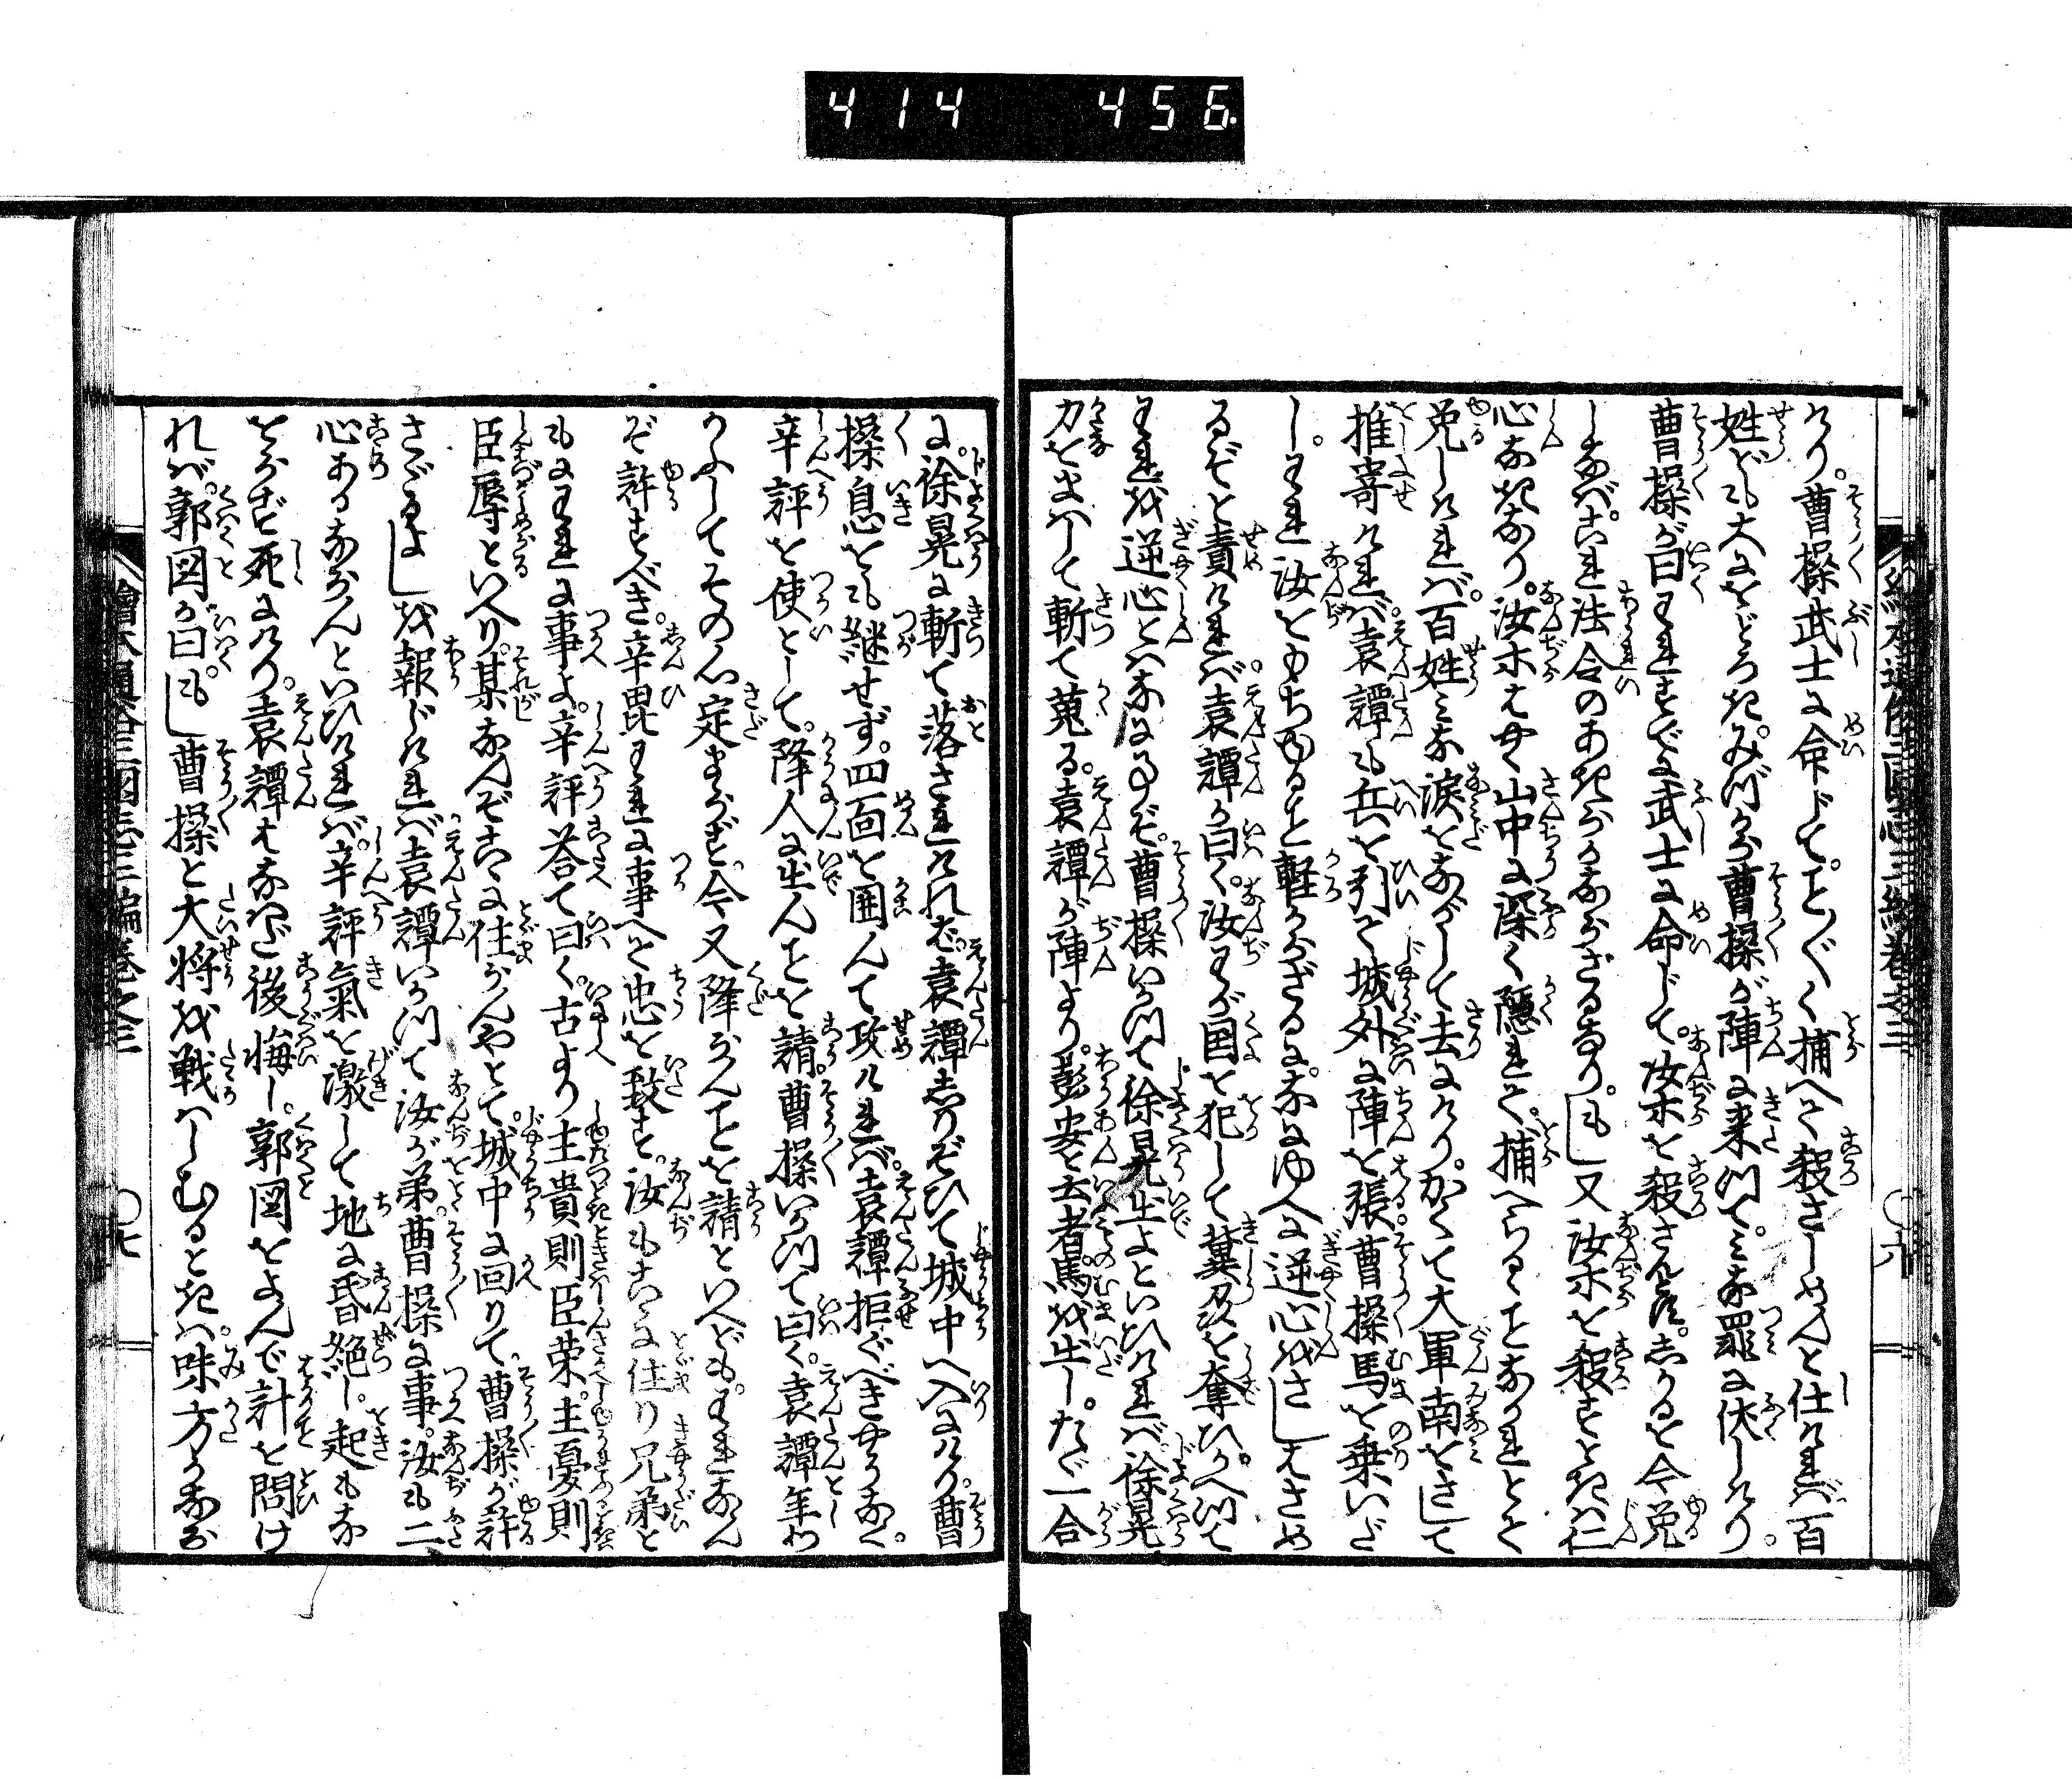 414 456
けり。曹操武士に命じて。こと〴〵く捕へて殺さしめんと仕ければ百
姓ども大におどろき。みづから曹操が陣に来つて。みな罪に伏しけり。
曹操が曰われすでに武士に命じて。汝ホを殺さんとす。しかるを今免
しなば。これ法令のあきらかならざるなり。もし又汝ホを殺すときは仁
心なきなり。汝ホはやく山中に深く隠れて。捕へらるゝことなかれとて
免しければ。百姓みな涙をながして去にけり。かくて大軍南をさして
推寄ければ。袁譚も兵を引て城外に陣を張。曹操馬を乗いだ
し。われ汝をゆちゆること軽からざるに。なにゆへに逆心をさしはさめ
るぞと責ければ。袁譚が曰く。汝わが国を犯して糞刄を奪ひ。かへつて
われを逆心とはなに事ぞ。曹操いかつて徐晃出よといひければ。徐晃
力をまはして斬て蒐る。袁譚が陣より。彭安と云者馬を出し。たゞ一合
に。徐晃に斬て落されければ。袁譚しりぞひて城中へ入にけり。曹
操息をも継せず。四面を囲んて攻ければ。袁譚拒ぐべきやうなく。
辛評を使として。降人に出んことを請。曹操いかつて曰く。袁譚年わ
かふしてその心定まらず。今又降らんことを請といへども。われなん
ぞ許すべき。辛毘われに事へて忠を致す。汝もこゝに住り兄弟と
もにわれに事よ。辛評荅て曰く。古より主貴則臣栄。主憂則
臣辱といへり。某なんぞこゝに住らんやとて。城中に回りて。曹操が許
さゞるよしを報じければ。袁譚いかつて汝が弟。曹操に事。汝も二
心あるならんといひければ。辛評氣を激して地に昏絶し。起もな
をらず死にけり。袁譚はなはだ後悔し。郭図をよんで計を問け
れば。郭図が曰。もし曹操と大将を戦はしむるときは。味方かなら